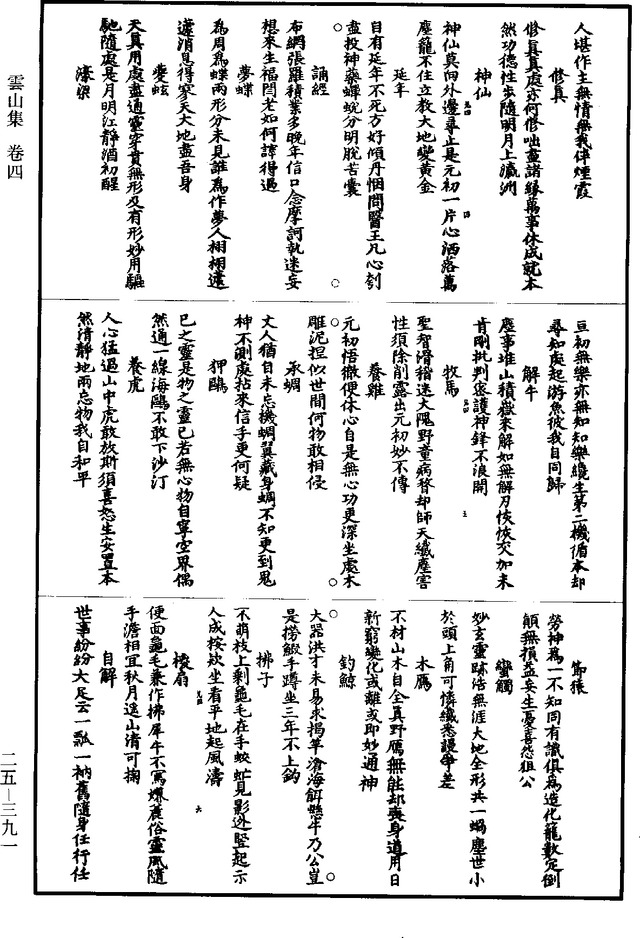 雲山集 卷四
人堪作主無情無我伴煙霞
修真
修真真處亦何修咄盡諸緣萬事休成就本
然功德性步隨明月上瀛洲
神仙
神仙莫向外邊尋止是元初一片心洒落萬
塵籠不住立教大地變黃金
延年
自有延年不死方好傾丹悃問醫王凡心刳
盡投神藥蟬蛻分明脫苦囊
誦經
布網張羅積業多晚年信口念摩訶執迷妄
想來生福閻老如何諱得過
夢蝶
為周為蝶兩形分未見誰為作夢人栩栩蘧
蘧消息得寥天大地盡吾身
夔蚿
天真用處盡通靈穿貫無形及有形妙用驅
馳隨處是月明江靜酒初醒
濠梁
亘初無樂亦無知知樂纔生第二機循本却
尋知處起游魚彼我自同歸
解牛
塵事堆山積嶽來解如無解刃恢恢交加未
肯剛批判密護神鋒不浪開
牧馬
聖智滑稽迷大隗野童病瞀却師天纖塵害
性須除削露出元初妙不傳
養雞
元初悟徹便休心自是無心功更深坐處木
雕泥捏似世間何物敢相侵
承蜩
丈人猶自未忘機蜩翼藏身蜩不知更到鬼
神不測處拈來信手更何疑
狎鷗
己之靈是物之靈己若無心物自寧空界偶
然通一線海鷗不敢下沙汀
養虎
人心猛過山中虎敢放斯須喜怒生安置本
然清靜地兩忘物我自和平
勞神為一不知同有識俱為造化籠數定倒
顛無損益妄生憂喜怨狙公
蠻觸
妙玄靈跡浩無涯大地全形共一蝸塵世小
於頭上角可憐纖悉謾爭差
木鴈
不材山木自全真野鴈無能却喪身道用日
新窮變化或離或即妙通神
釣鯨
大器洪才未易求揭竿滄海餌懸牛乃公豈
是撈鰕手蹲坐三年不上鈎
拂子
不萌枝上剩龜毛在手蛟虻見影逃豎起示
人成按款坐看平地起風濤
扇
便面龜毛兼作拂犀牛不寫俗靈風隨
手澹相宜秋月遙山清可掬
自解
世事紛紛大足云一瓢一衲舊隨身任行任
二五—三九一